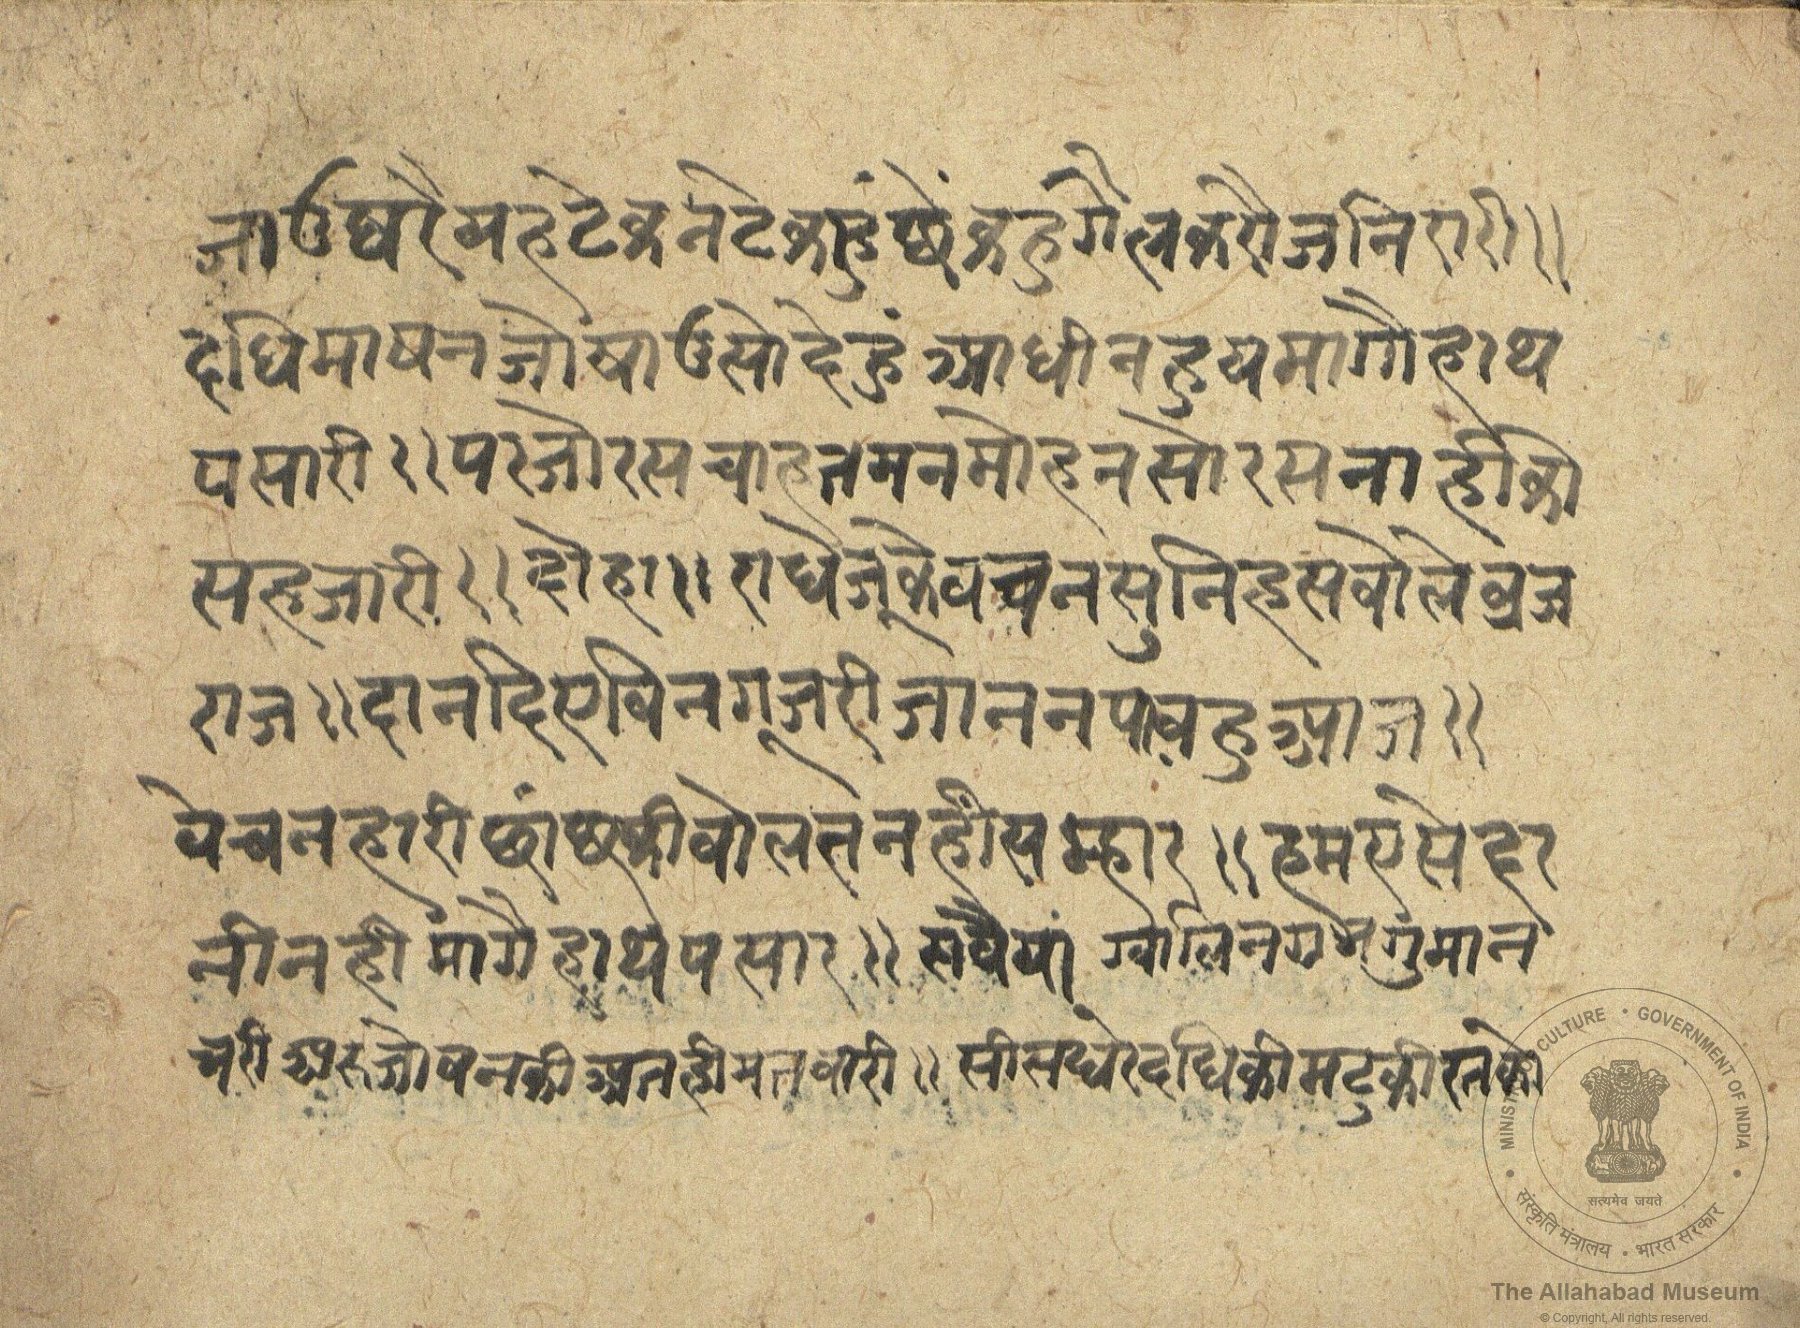 जाउघरै यह टेक न टेकहुं छोंकहु गैल करौ ज निरारी॥
दधि माषन जो षाउ सो देहुं आधीन हुय मागौ हाथ
पसारी॥ पर जो रस चाहत मनमोहन सो रस नाहीं की
सहजारी॥ दोहा॥ राधेजू के वचन सुनि हस वोले व्रज
राज॥ दान दिए विन गूजरी जान न पावहु आज॥
वेचनहारी छांछकी वोलत नहीं सम्हार॥ हम एसे दर
नी नहीं मागै हाथ पसार॥ सवैयां ग्वालिन गर्भ गुमान
भरी अरु जोवन की अतही मतवारी॥ सीस घरे दधि की मटुकी रत को
MINISTRY OF CULTURE • GOVERNMENT OF INDIA
सत्यमेव जयते
संस्कृति मंत्रालय • भारत सरकार
The Allahabad Museum
© Copyright, All rights reserved.